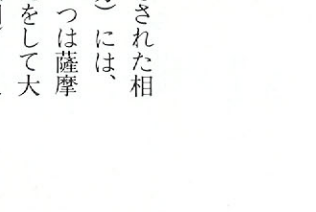 された相
）には、
つは薩摩
をして大